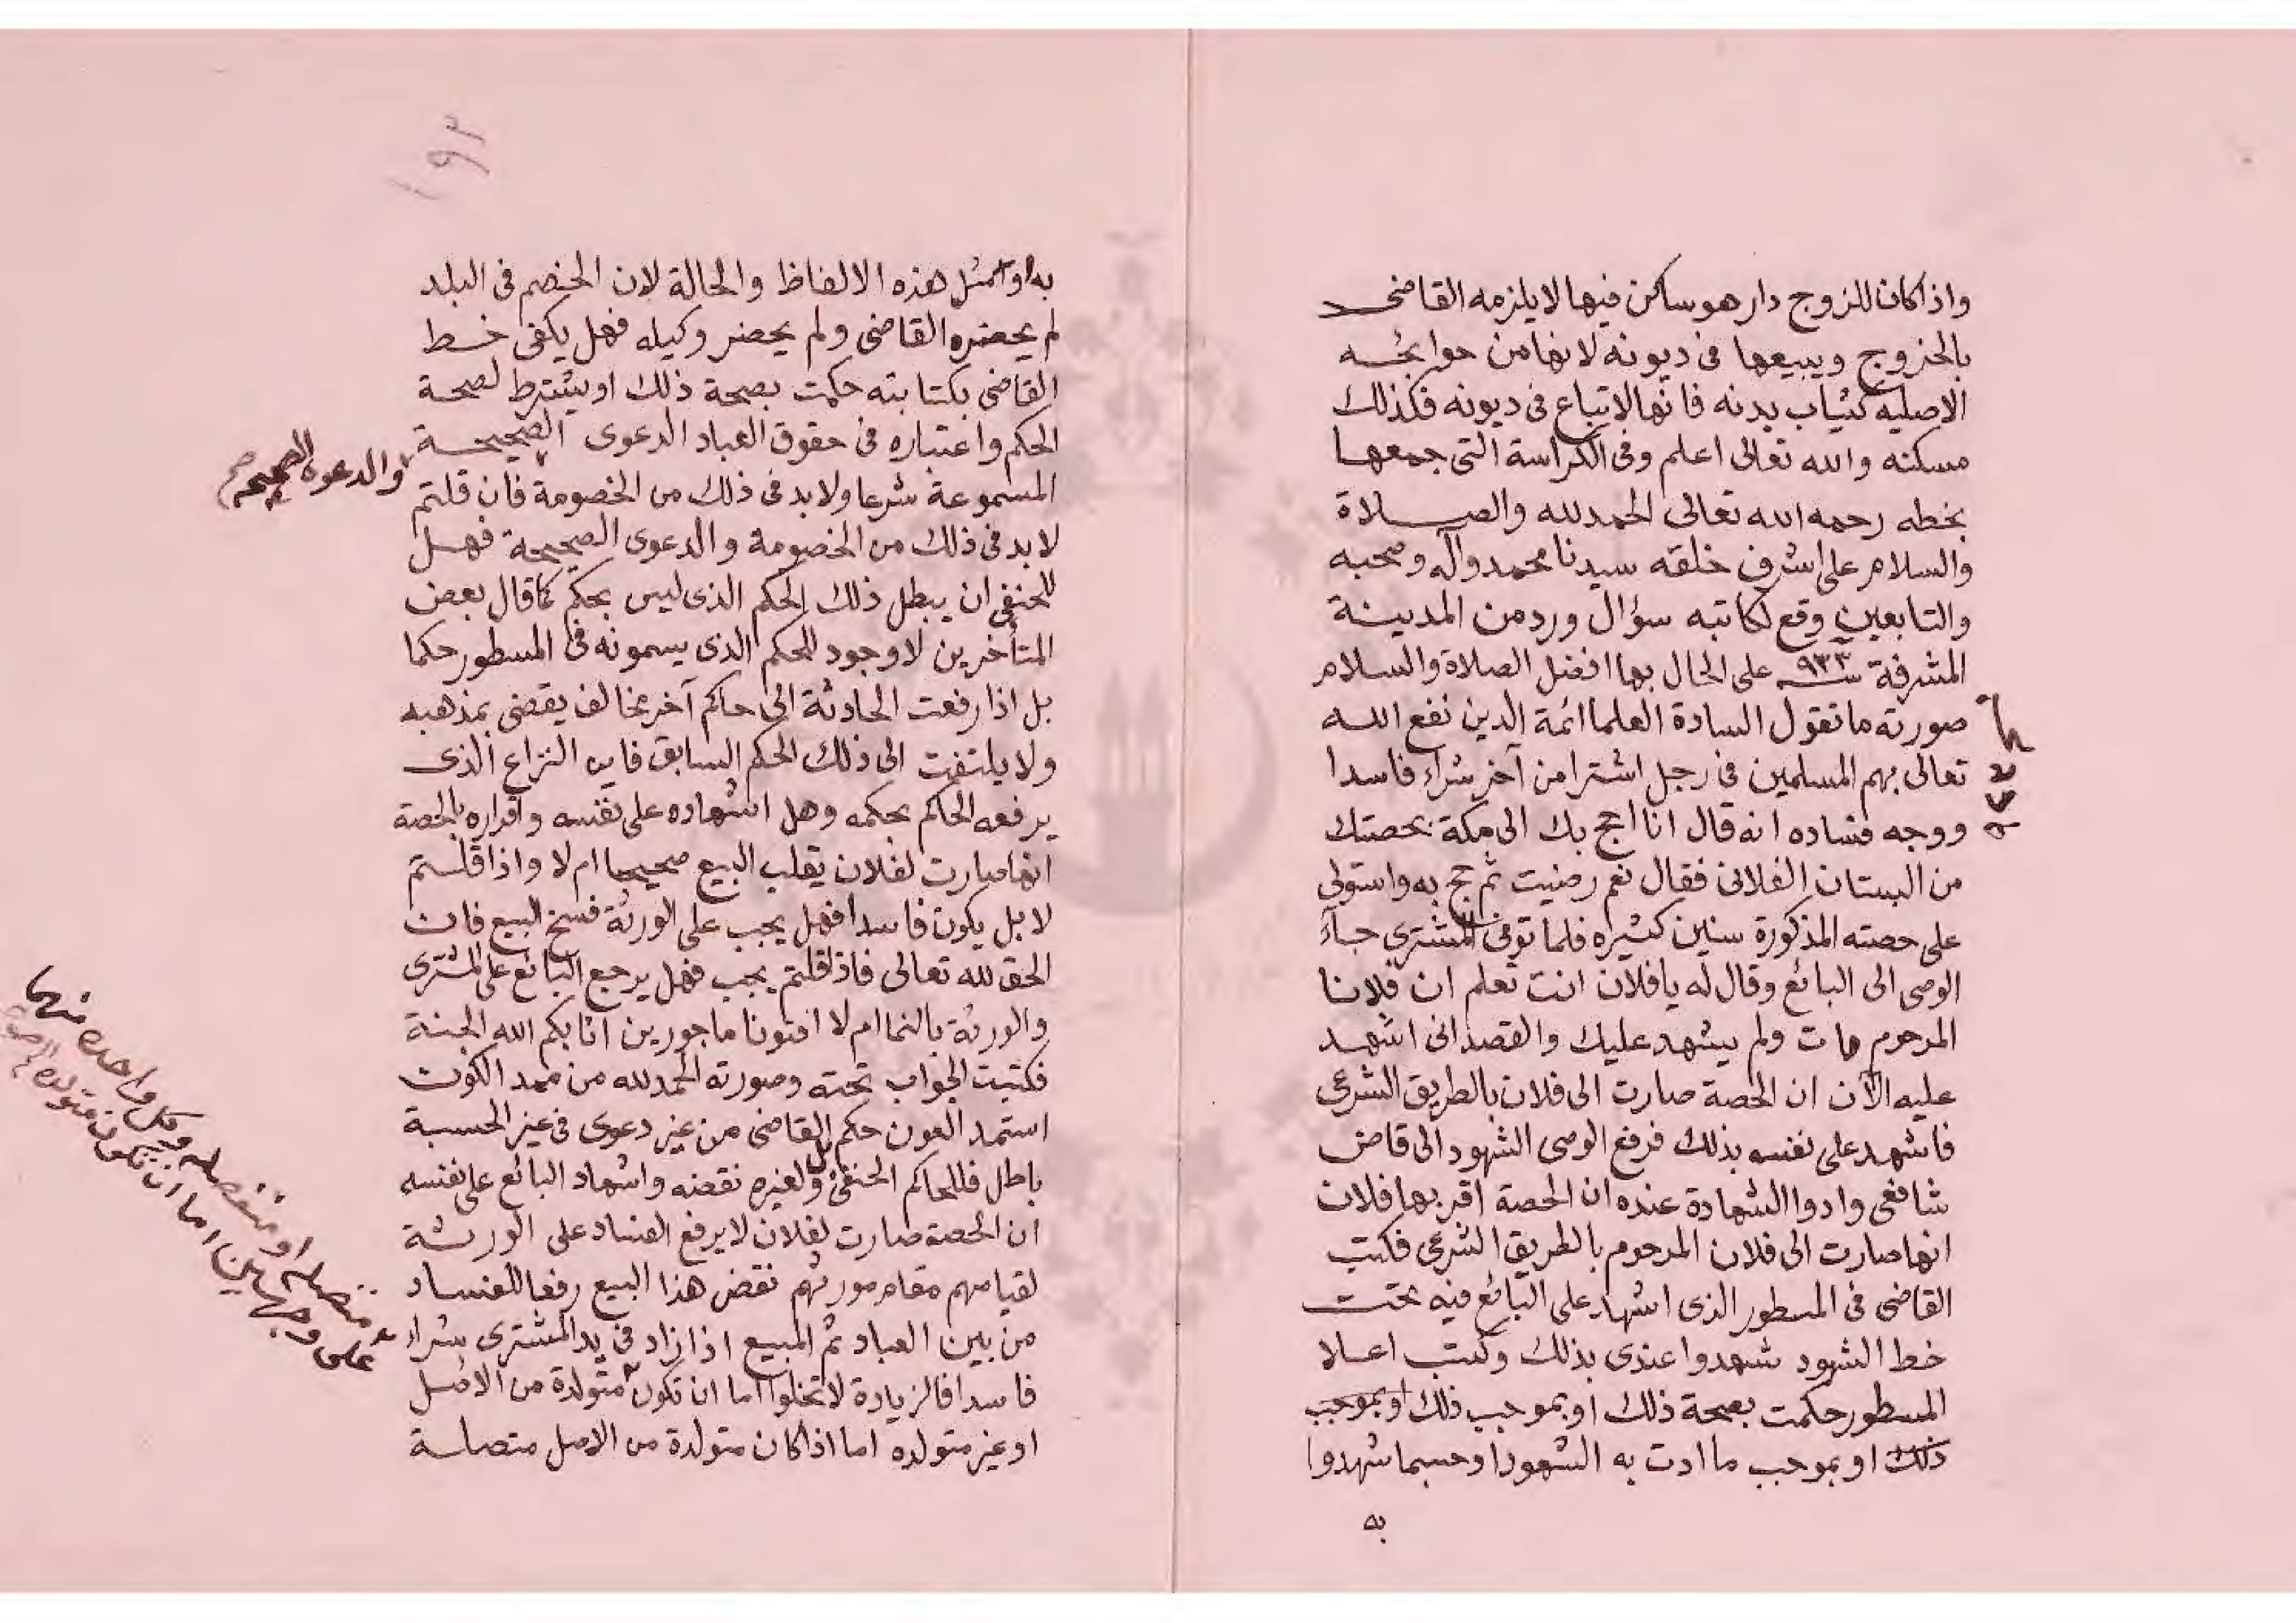 واذا كان للزوج دار هو ساكن فيها لا يلزمه القاضى
بالخروج ويبيعها فى ديونه لانها من حوائجه
الاصليه كثياب بدنه فانها لاتباع فى ديونه فكذلك
مسكنه والله تعالى اعلم وفى الكراسة التى جمعها
بخطه رحمه الله تعالى الحمد لله والصلاة
والسلام على اشرف خلقه سيدنا محمد وآله وصحبه
والتابعين وقع لكاتبه سؤال ورد من المدينة
المشرفة سنة ٩٣٣ على الحال بها افضل الصلاة والسلام
صورته ما تقول السادة العلما ائمة الدين نفع الله
تعالى بهم المسلمين فى رجل اشترا من آخر شراء فاسدا
ووجه فساده انه قال انا احج بك الى مكة بحصتك
من البستان الفلانى فقال نعم رضيت ثم حج به واستولى
على حصته المذكورة سنين كثيره فلما توفى المشترى جاء
الوصى الى البائع وقال له يا فلان انت تعلم ان فلانا
المرحوم مات ولم يشهد عليك والقصد انى اشهد
عليه الآن ان الحصة صارت الى فلان بالطريق الشرعى
فاشهد على نفسه بذلك فرفع الوصى الشهود الى قاض
شافعى وادوا الشهادة عنده ان الحصة اقر بها فلان
انها صارت الى فلان المرحوم بالطريق الشرعى فكتب
القاضى فى المسطور الذى اشهد على البائع فيه تحت
خط الشهود شهدوا عندى بذلك وكتب اعلا
المسطور حكمت بصحة ذلك او بموجب ذلك او بموجب
ذلك او بموجب ما ادت به الشهود او حسبما شهدوا
به
١٩٣
به او امثل هذه الالفاظ والحالة لان الخصم فى البلد
لم يحضره القاضى ولم يحضر وكيله فهل يكفى خط
القاضى بكتابته حكمت بصحة ذلك او يشترط لصحة
الحكم واعتباره فى حقوق العباد الدعوى الصحيحة
والدعوه الصحيحه صح
المسموعة شرعا ولا بد فى ذلك من الخصومة فان قلتم
لا بد فى ذلك من الخصومة والدعوى الصحيحة فهل
للحنفى ان يبطل ذلك الحكم الذى ليس بحكم كما قال بعض
المتأخرين لا وجود للحكم الذى يسمونه فى المسطور حكما
بل اذا رفعت الحادثة الى حاكم آخر مخالف يقضى بمذهبه
ولا يلتفت الى ذلك الحكم السابق فاين النزاع الذى
يرفعه الحاكم بحكمه وهل اشهاده على نفسه واقراره بالحصة
انها صارت لفلان يقلب البيع صحيحا ام لا واذا قلتم
لا بل يكون فاسدا فهل يجب على الورثة فسخ البيع فان
الحق لله تعالى فاذا قلتم يجب فهل يرجع البائع على المشترى
والورثة بالنما ام لا افتونا ماجورين اثابكم الله الجنة
فكتبت الجواب تحته وصورته الحمد لله من ممد الكون
استمد العون حكم القاضى من غير دعوى فى غير الحسبة
باطل فللحاكم الحنفى بل ولغيره نقضه واشهاد البائع على نفسه
ان الحصة صارت لفلان لا يرفع الفساد على الورثة
لقيامهم مقام مورثهم نقض هذا البيع رفعا للفساد
من بين العباد ثم المبيع اذا زاد فى يد المشترى شراء
فاسدا فالزيادة لا تخلوا اما ان تكون متولدة من الاصل
او غير متولده اما اذا كان متولدة من الاصل متصلة
متصله او منفصله وكل واحده منهما
على وجهين اما ان تكون متولده